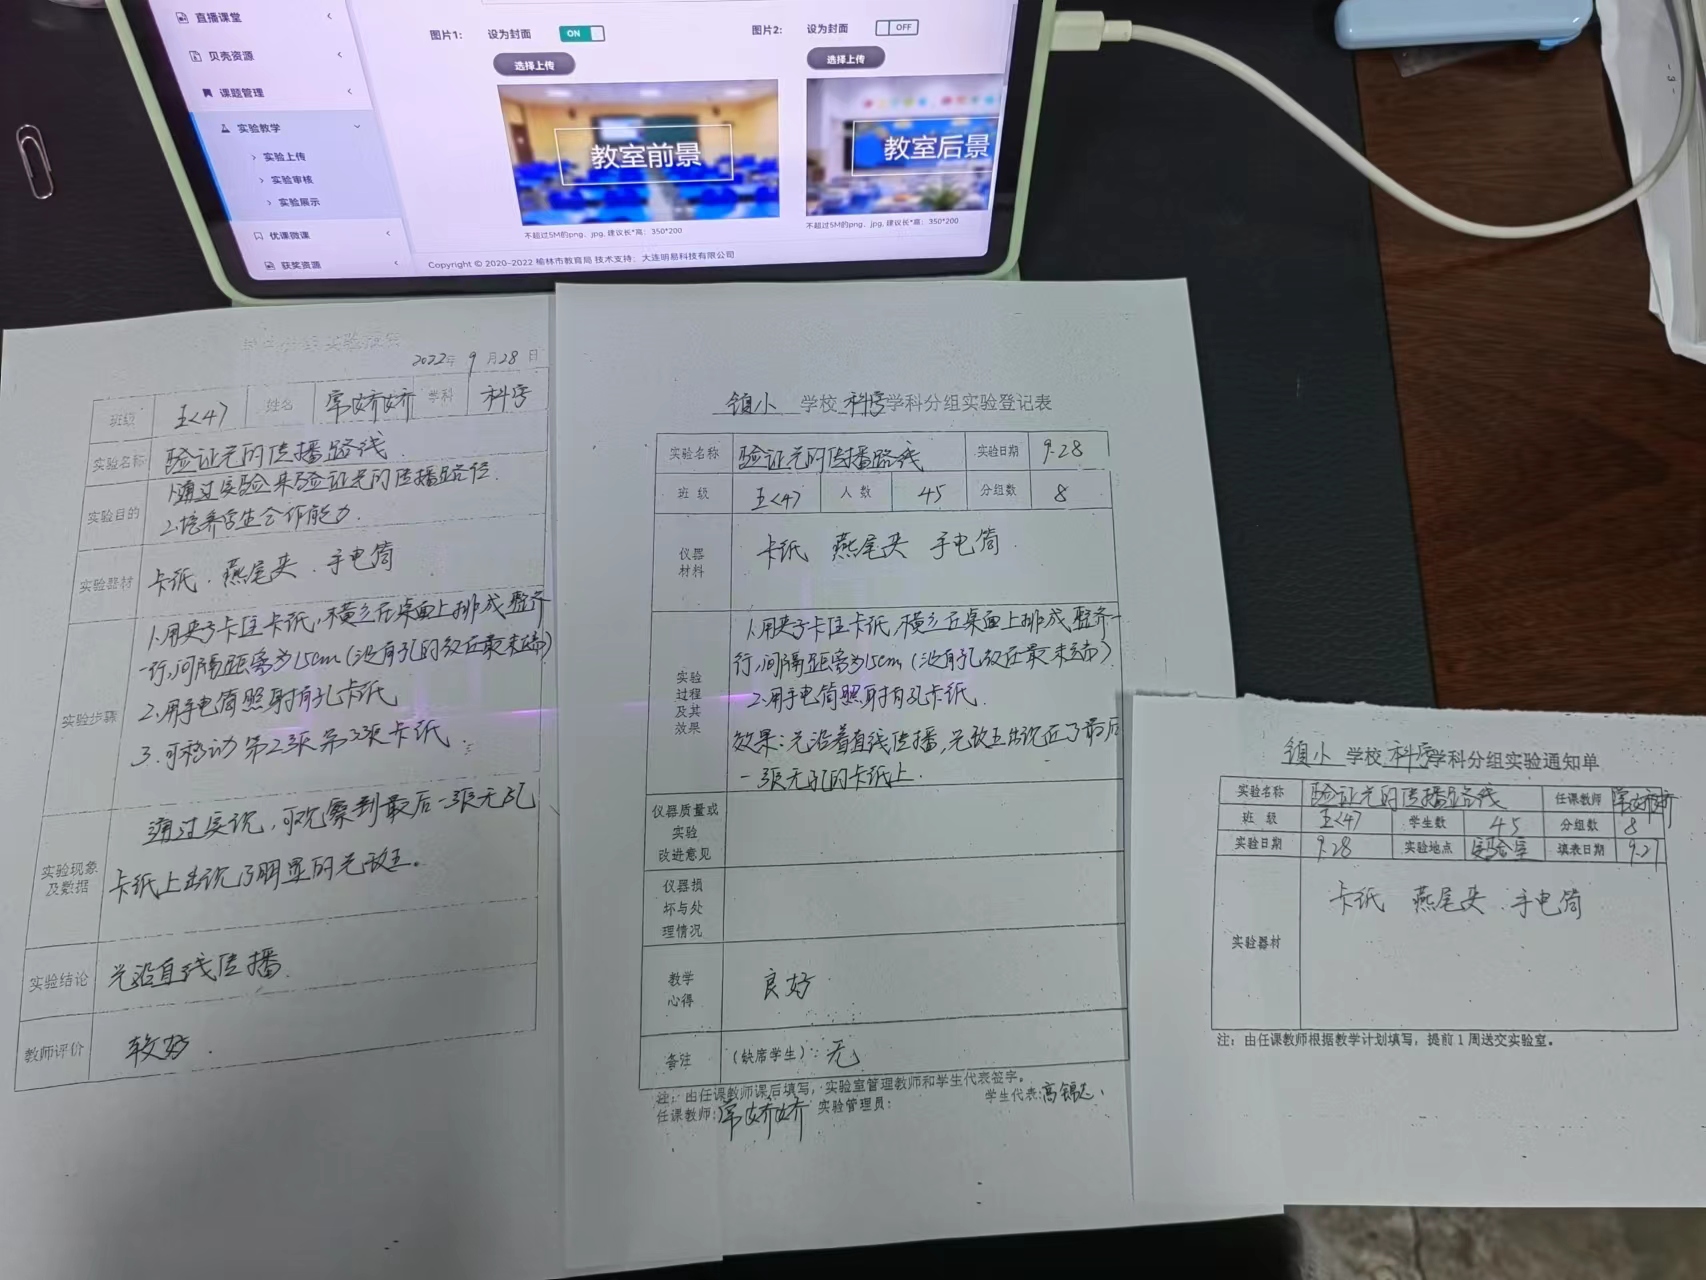 直播课堂
贝壳资源
课题管理
实验教学
实验上传
实验审核
实验展示
优课微课
获奖资源
图片1: 设为封面 ON
选择上传
教室前景
不超过5M的png、jpg, 建议长*高: 350*200
图片2: 设为封面 OFF
选择上传
教室后景
不超过5M的png、jpg, 建议长*高: 350*200
Copyright © 2020-2022 榆林市教育局 技术支持: 大连明易科技有限公司
2022年 9 月28 日
班级 五<4> 姓名 常娇娇 学科 科学
实验名称 验证光的传播路线.
实验目的 1.通过实验来验证光的传播路径.
2.培养学生合作能力.
实验器材 卡纸. 燕尾夹. 手电筒
实验步骤 1.用夹子卡住卡纸,横立在桌面上排成整齐
一行,间隔距离为15cm(没有孔的放在最末端)
2.用手电筒照射有孔卡纸
3.可移动第2张第3张卡纸.
实验现象及数据 通过实验,可观察到最后一张无孔
卡纸上出现了明显的光斑。
实验结论 光沿直线传播.
教师评价 较好.
镇小 学校 科学 学科分组实验登记表
实验名称 验证光的传播路线 实验日期 9.28
班 级 五<4> 人 数 45 分组数 8
仪器材料 卡纸 燕尾夹 手电筒.
实验过程及其效果 1.用夹子卡住卡纸,横立在桌面上排成整齐一
行,间隔距离为15cm(没有孔放在最末端).
2.用手电筒照射有孔卡纸.
效果:光沿着直线传播,光斑出现在了最后
一张无孔的卡纸上.
仪器质量或实验改进意见
仪器损坏与处理情况
教学心得 良好
备注 (缺席学生): 无
注: 由任课教师课后填写, 实验室管理教师和学生代表签字。
任课教师: 常娇娇 实验管理员: 学生代表:
镇小 学校 科学 学科分组实验通知单
实验名称 验证光的传播路线 任课教师 常娇娇
班 级 五<4> 学生数 45 分组数 8
实验日期 9.28 实验地点 实验室 填表日期 9.27
实验器材 卡纸 燕尾夹. 手电筒
注: 由任课教师根据教学计划填写, 提前1周送交实验室。